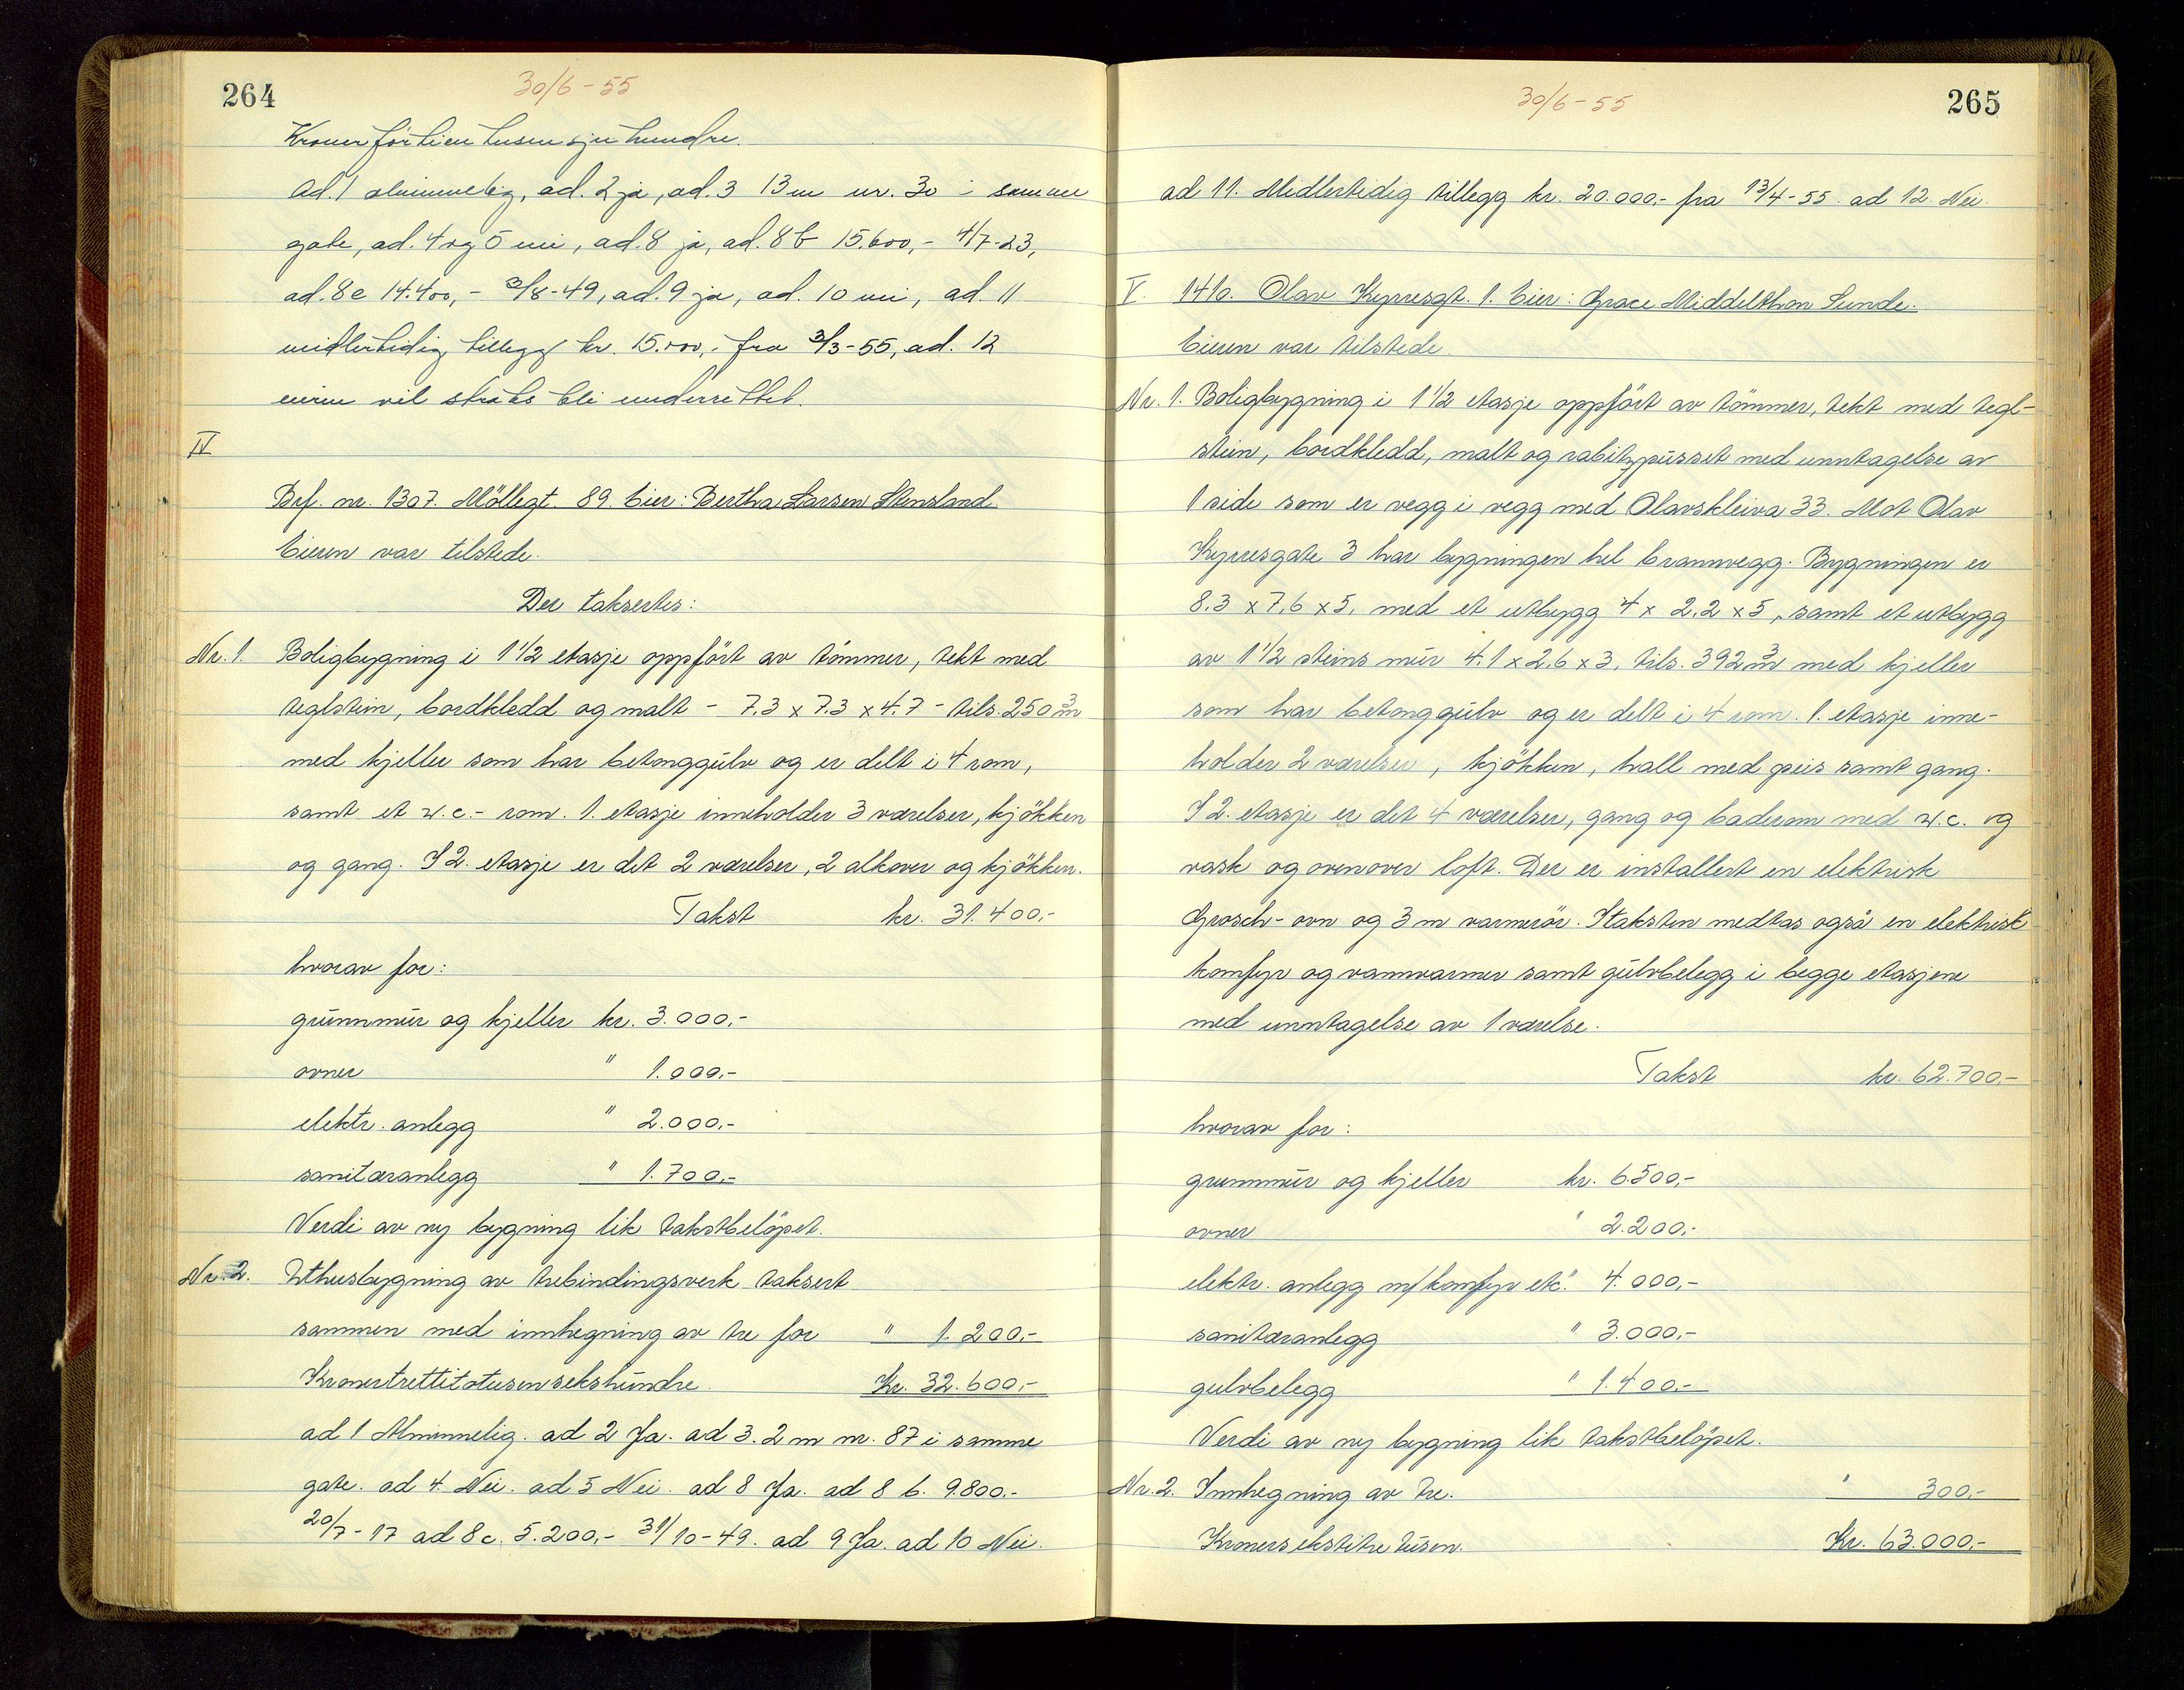 264
30/6-55
Kroner förtien tusen sju hundre.
Ad. 1 alminnelig, ad. 2 ja, ad. 3 13 m nr. 30 i samme
gate, ad. 4 og 5 nei, ad. 8 ja, ad. 8 b 15.600,- 4/7-23,
ad. 8 c 14.400,- 3/8-49, ad. 9 ja, ad. 10 nei, ad. 11
midlertidig tillegg kr. 15.000,- fra 3/3-55, ad. 12
eieren vil straks bli underrettet.
IV
Brf. nr. 1307. Möllegt. 89. Eier: Bertha Larsen Stensland.
Eieren var tilstede.
Der taksertes:
Nr. 1. Boligbygning i 1 1/2 etasje oppfört av tömmer, tekt med
teglstein, bordkledd og malt - 7.3 x 7.3 x 4.7 - tils. 250 m3
med kjeller som har betonggulv og er delt i 4 rom,
samt et w.c.- rom. 1. etasje inneholder 3 værelser, kjökken
og gang. I 2. etasje er det 2 værelser, 2 alkover og kjökken.
Takst kr. 31.400,-
hvorav for:
grunnmur og kjeller kr. 3.000,-
ovner " 1.000,-
elektr. anlegg " 2.000,-
sanitæranlegg " 1.700,-
Verdi av ny bygning lik takstbelöpet.
Nr. 2. Uthusbygning av trebindingsverk taksert
sammen med innhegning av tre for " 1.200,-
Kronertrettitotusensekshundre. Kr. 32.600,-
ad 1 Alminnelig. ad 2 Ja. ad 3. 2 m nr. 87 i samme
gate. ad 4. Nei. ad 5 Nei. ad 8 Ja. ad 8 b. 9.800.-
20/7-17 ad 8 c. 5.200,- 31/10-49. ad 9 Ja. ad 10 Nei.
265
30/6-55
ad 11. Midlertidig tillegg kr. 20.000,- fra 13/4-55. ad 12. Nei.
V. 1410. Olav Kyrresgt. 1. Eier: Grace Middelthon Sunde.
Eieren var tilstede.
Nr. 1. Boligbygning i 1 1/2 etasje oppfört av tömmer, tekt med tegl-
stein, bordkledd, malt og rabitzpusset med unntagelse av
1 side som er vegg i vegg med Olavskleiva 33. Mot Olav
Kyrresgate 3 har bygningen hel brannvegg. Bygningen er
8.3 x 7.6 x 5. med et utbygg 4 x 2.2 x 5, samt et utbygg
av 1 1/2 steins mur 4.1 x 2.6 x 3. tils. 392 m3 med kjeller
som har betonggulv og er delt i 4 rom. 1. etasje inne-
holder 2 værelser, kjökken, hall med peis samt gang.
I 2. etasje er det 4 værelser, gang og baderom med w.c. og
vask og ovenover loft. Der er installert en elektrisk
Grosch-ovn og 3 m varmerör. I taksten medtas også en elektrisk
komfyr og vannvarmer samt gulvbelegg i begge etasjene
med unntagelse av 1 værelse.
Takst kr. 62.700,-
hvorav for:
grunnmur og kjeller kr. 6.500,-
ovner " 2.200,-
elektr. anlegg m/komfyr etc. " 4.000,-
sanitæranlegg " 3.000,-
gulvbelegg " 1.400,-
Verdi av ny bygning lik takstbelöpet.
Nr. 2. Innhegning av tre. " 300,-
Kronersekstitretusen. Kr. 63.000,-